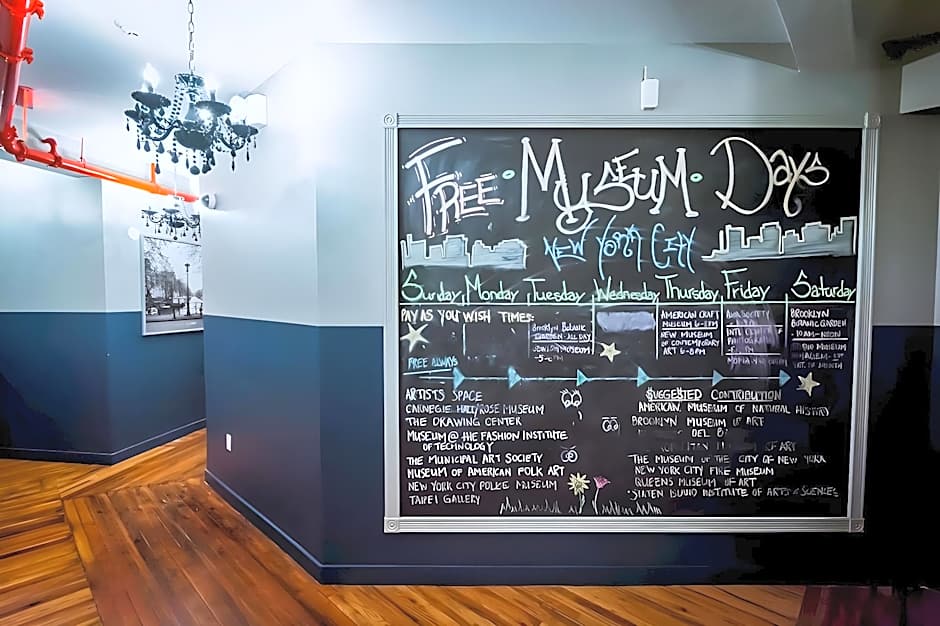 FREE · MUSEUM · DAYS
NEW YORK CITY
Sunday Monday Tuesday Wednesday Thursday Friday Saturday
PAY AS YOU WISH TIMES:
BROOKLYN BOTANIC
GARDEN - ALL DAY
JEWISH MUSEUM
AMERICAN CRAFT
MUSEUM 6-8PM
NEW MUSEUM
OF CONTEMPORARY
ART 6-8PM
ASIA SOCIETY
BROOKLYN
BOTANIC GARDEN
- 10AM-NOON
FREE ALWAYS
ARTISTS SPACE
CARNEGIE HALL/ROSE MUSEUM
THE DRAWING CENTER
MUSEUM @ THE FASHION INSTITUTE
OF TECHNOLOGY
THE MUNICIPAL ART SOCIETY
MUSEUM OF AMERICAN FOLK ART
NEW YORK CITY POLICE MUSEUM
TAIPEI GALLERY
SUGGESTED CONTRIBUTION
AMERICAN MUSEUM OF NATURAL HISTORY
BROOKLYN MUSEUM OF ART
DEL
OF ART
THE MUSEUM OF THE CITY OF NEW YORK
NEW YORK CITY FIRE MUSEUM
QUEENS MUSEUM OF ART
STATEN ISLAND INSTITUTE OF ARTS & SCIENCES